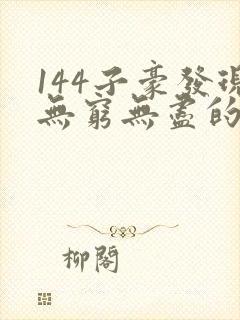 144子豪發現
無窮無盡的
柳閣